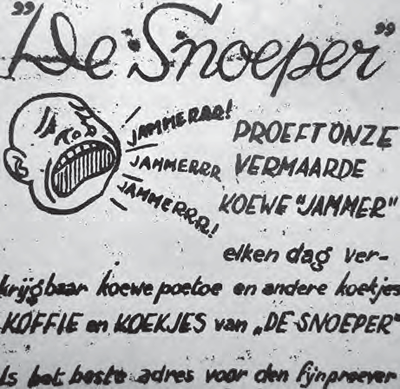 "De Snoeper"
JAMMERRR!
JAMMERRR
JAMMERRR!
PROEFT ONZE
VERMAARDE
KOEWE "JAMMER"
elken dag ver-
krijgbaar koewe poetoe en andere koekjes
KOFFIE en KOEKJES van "DE SNOEPER"
Is het beste adres voor den fijnproever